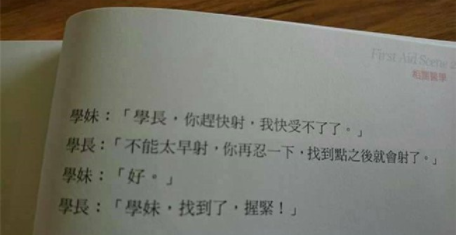 First Aid Scene 2
相關醫學
學妹：「學長，你趕快射，我快受不了了。」
學長：「不能太早射，你再忍一下，找到點之後就會射了。」
學妹：「好。」
學長：「學妹，找到了，握緊！」